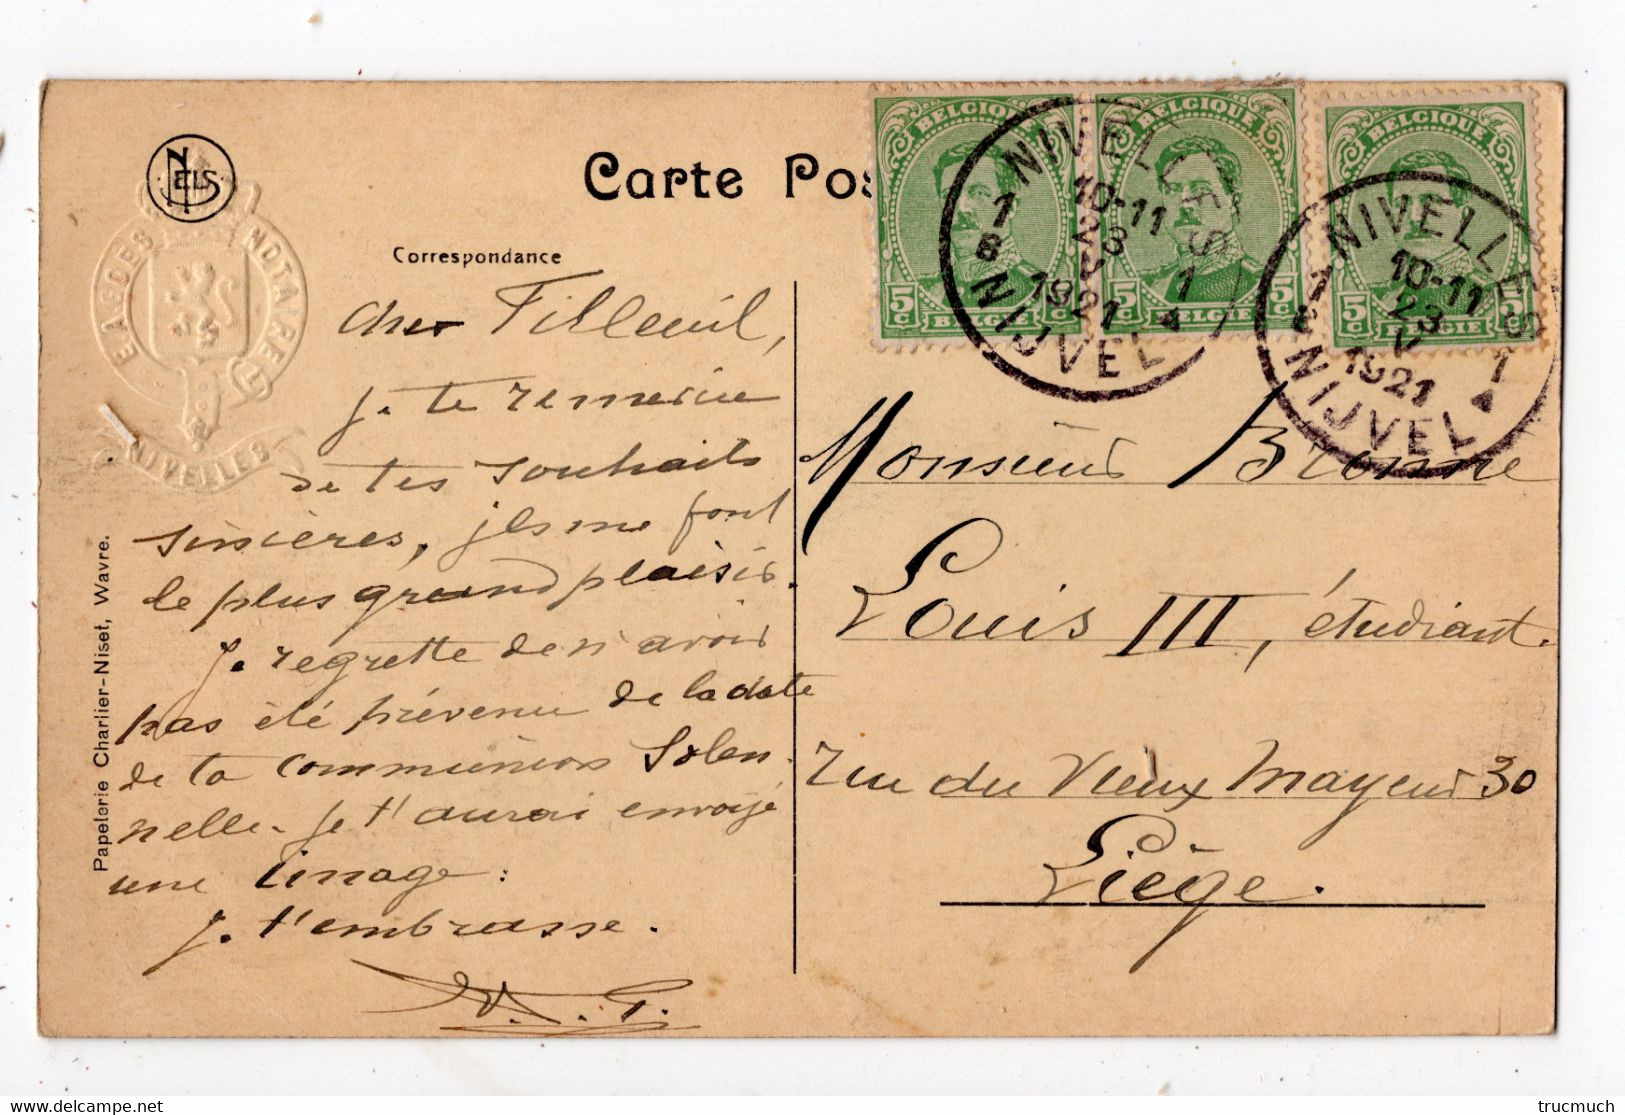 NELS
E. A. DES
NOTAIRE
NIVELLES
Carte Pos
Correspondance
BELGIQUE
5c
5c
BELGIE
BELGIQUE
5c
5c
BELGIE
BELGIQUE
5c
5c
BELGIE
NIVELLES
10-11
23
V
1921
1 B
1 A
NIJVEL
NIVELLES
10-11
23
V
1921
1
1 A
NIJVEL
cher Filleul,
Je te remercie
de tes souhaits
sincères, ils me font
le plus grand plaisir.
Je regrette de n'avoir
pas été prévenu de la date
de ta communion Solen
nelle. Je t'aurai envoyé
une image :
Je t'embrasse.
Papeterie Charlier-Niset, Wavre.
Monsieur Bronne
Louis III, étudiant.
rue du Vieux Mayeur 30
Liège.
trucmuch